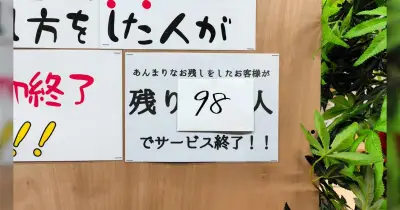 方をした人が
終了
!!
あんまりなお残しをしたお客様が
残り98人
でサービス終了!!